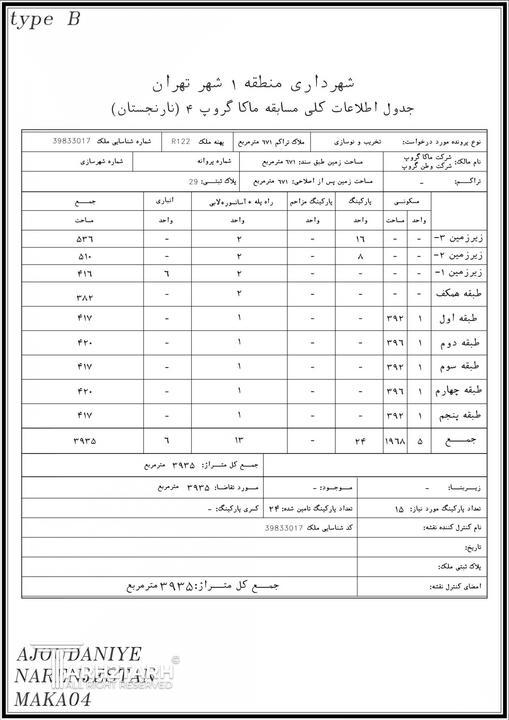 type B
شهرداری منطقه ۱ شهر تهران
جدول اطلاعات کلی مسابقه ماکا گروپ ۴ (نارنجستان)
نوع پرونده مورد درخواست: تخریب و نوسازی ملاک تراکم ۶۷۱ مترمربع پهنه ملک R122 شماره شناسایی ملک 39833017
نام مالک: شرکت ماکا گروپ شرکت وطن گروپ مساحت زمین طبق سند: ۶۷۱ مترمربع شماره پروانه شماره شهرسازی
تراکم: - مساحت زمین پس از اصلاحی: ۶۷۱ مترمربع پلاک ثبتی: 29
مسکونی پارکینگ پارکینگ مزاحم راه پله + آسانسور+لابی انباری جمع
واحد مساحت واحد واحد واحد واحد مساحت
زیرزمین ۳- - - ۱۶ - ۲ - ۵۳۶
زیرزمین ۲- - - ۸ - ۲ - ۵۱۰
زیرزمین ۱- - - - - ۲ ۶ ۴۱۶
طبقه همکف - - - - ۲ - ۳۸۲
طبقه اول ۱ ۳۹۲ - - ۱ - ۴۱۷
طبقه دوم ۱ ۳۹۶ - - ۱ - ۴۲۰
طبقه سوم ۱ ۳۹۲ - - ۱ - ۴۱۷
طبقه چهارم ۱ ۳۹۶ - - ۱ - ۴۲۰
طبقه پنجم ۱ ۳۹۲ - - ۱ - ۴۱۷
جمع ۵ ۱۹۶۸ ۲۴ - ۱۳ ۶ ۳۹۳۵
جمع کل متراژ: ۳۹۳۵ مترمربع
زیربنا: - موجود: - مورد تقاضا: ۳۹۳۵ مترمربع
تعداد پارکینگ مورد نیاز: ۱۵ تعداد پارکینگ تامین شده: ۲۴ کسری پارکینگ: -
نام کنترل کننده نقشه: کد شناسایی ملک 39833017
تاریخ:
پلاک ثبتی ملک:
امضای کنترل نقشه: جمع کل متراژ:۳۹۳۵ مترمربع
AJOUDANIYE
NARENJESTAN
MAKA04
ALL RIGHT RESERVED